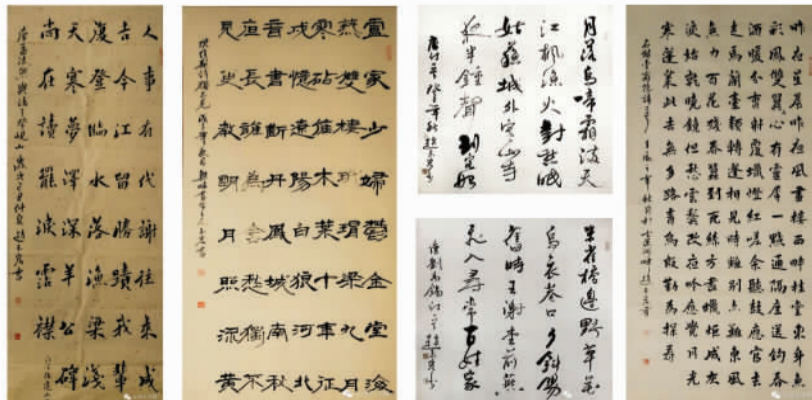 人事有代謝往来成
古今江留勝蹟我輩
復登臨水落漁梁淺
天寒夢澤深羊公碑
尚在讀罷淚霑襟
唐孟浩然與諸子登峴山
盧家少婦鬱金堂海
燕雙棲玳瑁梁九月
寒砧催木葉十年征
戍憶遼陽白狼河北
音書斷丹鳳城南秋
夜長誰為含愁獨不
見更教明月照流黃
月落烏啼霜滿天
江楓漁火對愁眠
姑蘇城外寒山寺
夜半鐘聲到客船
朱雀橋邊野草花
烏衣巷口夕斜陽
舊時王謝堂前燕
飛入尋常百姓家
唐劉禹錫
昨夜星辰昨夜風畫樓西畔桂堂東身無
彩鳳雙翼心有靈犀一點通隔座送鉤春
酒暖分曹射覆蠟燈紅嗟余聽鼓應官去
走馬蘭臺類轉蓬相見時難別亦難東風
無力百花殘春蠶到死絲方盡蠟炬成灰
淚始乾曉鏡但愁雲鬢改夜吟應覺月光
寒蓬萊此去無多路青鳥殷勤為探看